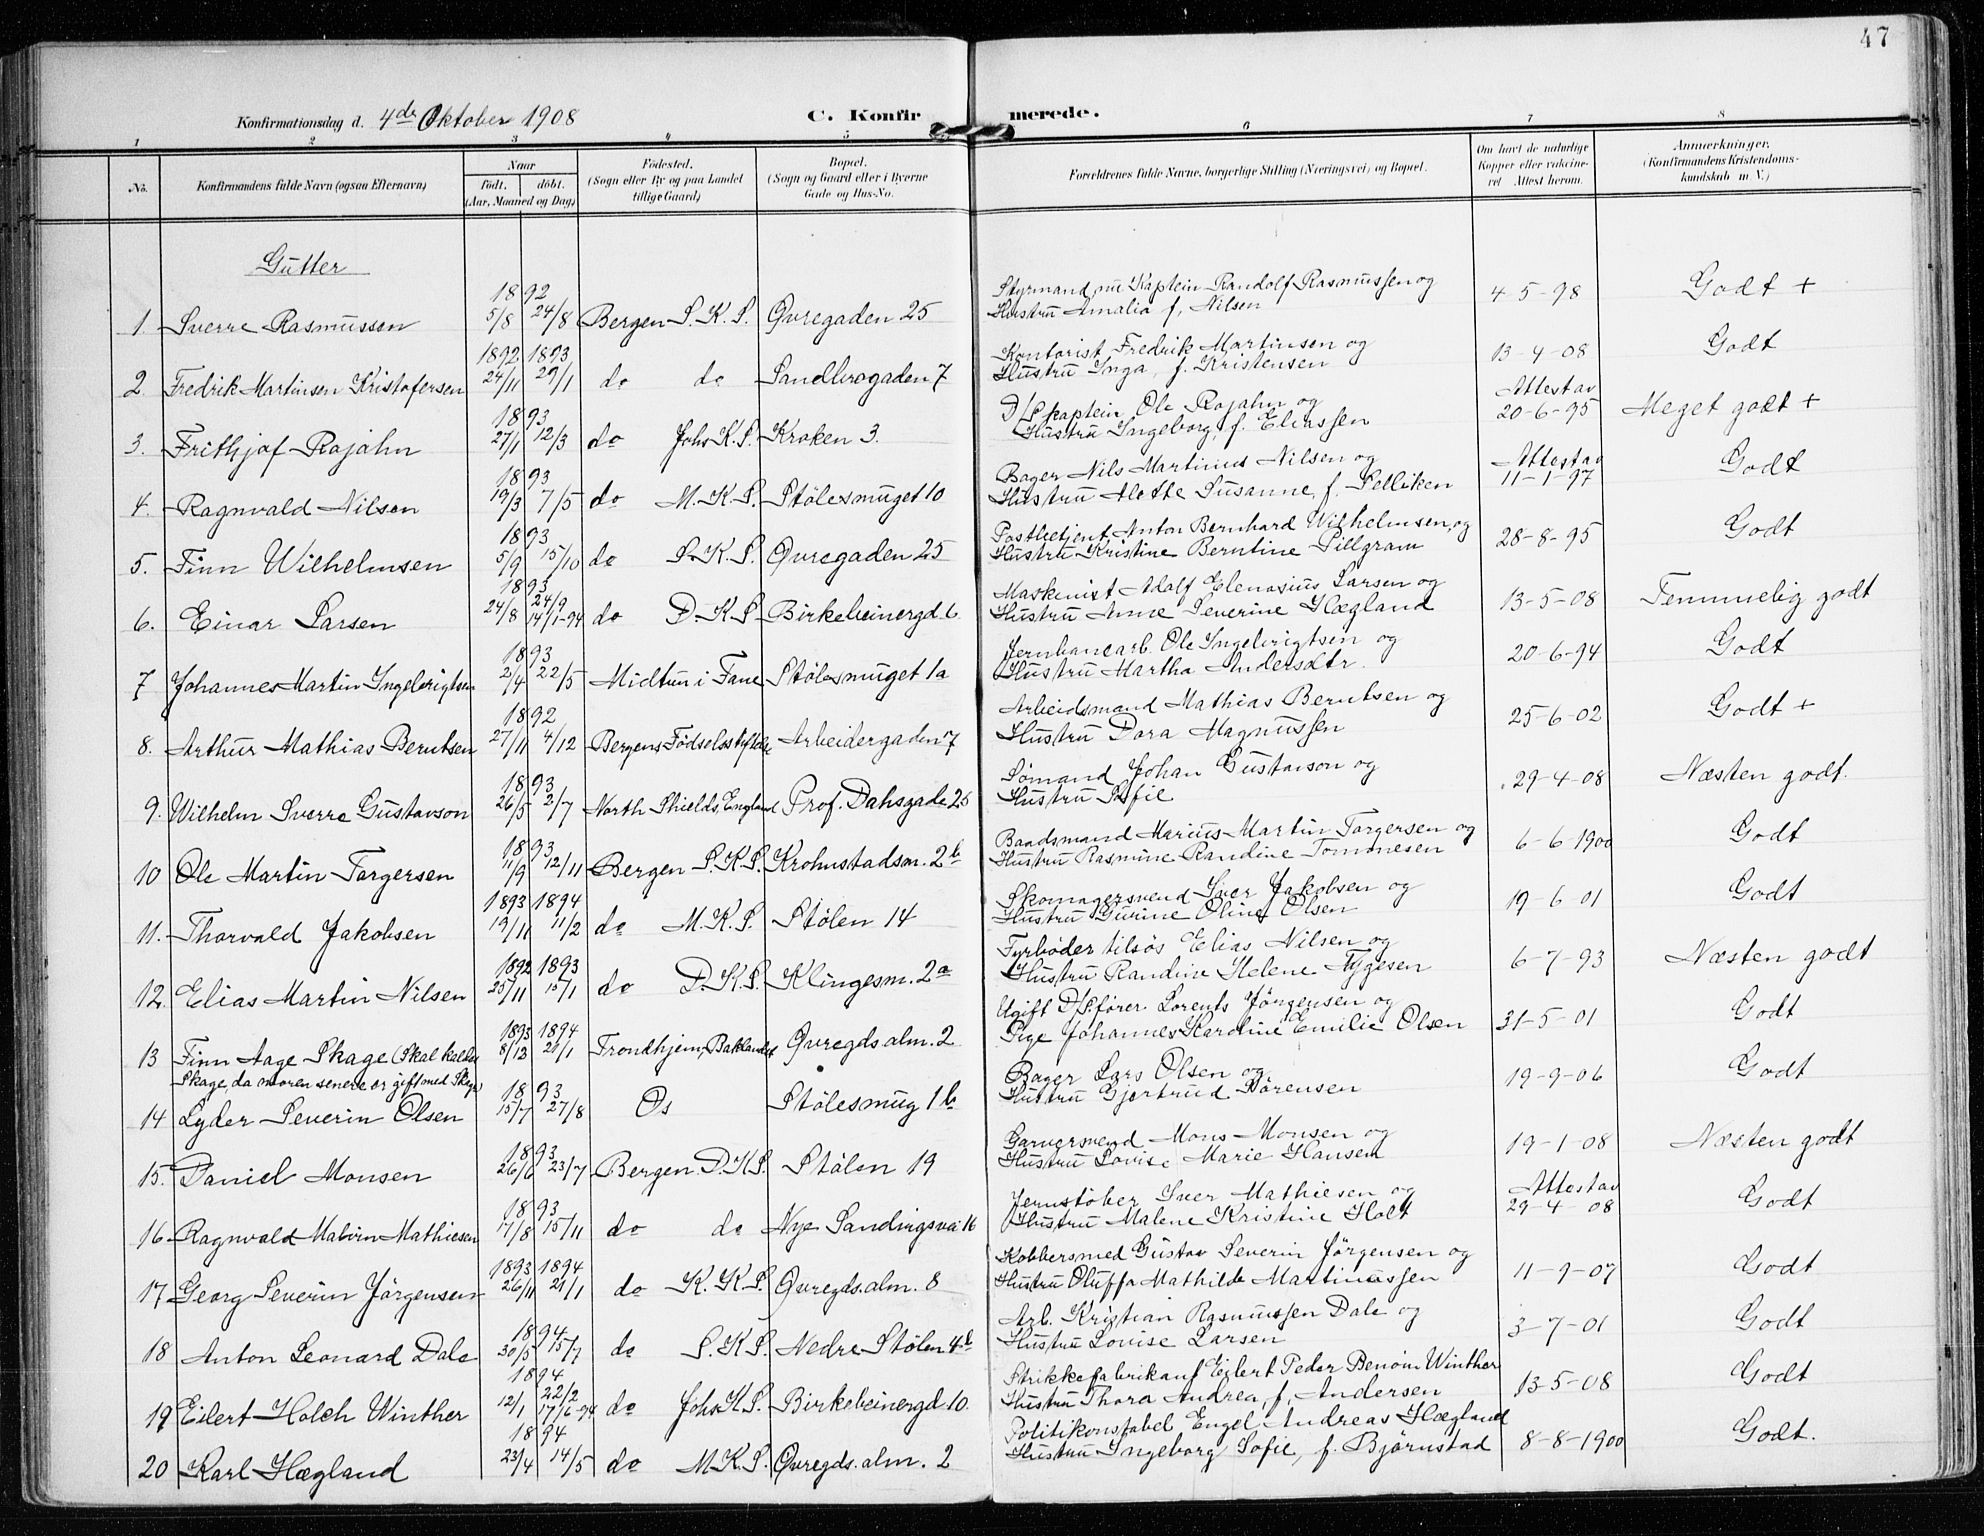 47
Konfirmationsdag d. 4de Oktober 1908 C. Konfirmerede.
1 2 3 4 5 6 7 8
No. Konfirmandens fulde Navn (ogsaa Efternavn) Naar født. døbt. (Aar, Maaned og Dag) Fødested. (Sogn eller By og paa Landet tillige Gaard) Bopæl. (Sogn og Gaard eller i Byerne Gade og Hus-No. Forældrenes fulde Navne, borgerlige Stilling (Næringsvei) og Bopæl. Om havt de naturlige Kopper eller vaccineret Attest herom. Anmærkninger. (Konfirmandens Kristendomskundskab m. V.)
Gutter
1. Sverre Rasmussen 1892 5/8 24/8 Bergen S.K.S. Øvregaden 25 Styrmand nu Kaptein Randolf Rasmussen og Hustru Amalia f. Nilsen 4-5-98 Godt +
2. Fredrik Martinsen Kristofersen 1892 24/11 1893 29/1 do do Sandbrogaden 7 Kontorist Fredrik Martinsen og Hustru Inga, f. Kristensen 13-4-08 Godt
3. Frithjof Rojahn 1893 27/1 12/3 do Johs K.S. Kroken 3. D/S kaptein Ole Rojahn og Hustru Ingeborg, f. Eliassen Attestav 20-6-95 Meget godt +
4. Ragnvald Nilsen 1893 19/3 7/5 do M.K.S. Stølesmuget 10 Bager Nils Martinus Nilsen og Hustru Alette Susanne, f. Pelliken Attestav 11-1-97 Godt
5. Finn Wilhelmsen 1893 5/9 15/10 do S.K.S. Øvregaden 25 Postbetjent Anton Bernhard Wilhelmsen og Hustru Kristine Berntine Pillgram 28-8-95 Godt
6. Einar Larsen 1893 24/8 24/9 14/1-94 do D.K.S. Birkebeinergd. 6 Maskinist Adolf Elenasius Larsen og Hustru Anne Severine Hægland 13-5-08 Temmelig godt
7 Johannes Martin Ingebrigtsen 1893 2/4 22/5 Midtun i Fane Stølesmuget 1a Jernbanearb. Ole Ingebrigtsen og Hustru Martha Andersdtr. 20-6-94 Godt
8. Arthur Mathias Berntsen 1892 27/11 4/12 Bergens Fødselsstiftelse Arbeidergaden 7 Arbeidsmand Mathias Berntsen og Hustru Dora Magnussen 25-6-02 Godt +
9. Wilhelm Sverre Gustavson 1893 26/5 2/7 North Shields, England Prof. Dahsgade 25 Sømand Johan Gustavson og Hustru Sofie 29-4-08 Næsten godt.
10 Ole Martin Torgersen 1893 11/9 12/11 Bergen S.K.S. Krohnstadsm. 2b Baadsmand Marius Martin Torgersen og Hustru Rasmine Randine Tommesen 6-6-1900 Godt
11. Thorvald Jakobsen 1893 19/11 1894 11/2 do M.K.S. Stølen 14 Skomagersvend Iver Jakobsen og Hustru Gurine Oline Olsen 19-6-01 Godt
12. Elias Martin Nilsen 1892 25/11 1893 15/1 do D.K.S. Klingesm. 2a Fyrbøder tilsøs Elias Nilsen og Hustru Randine Helene Tygesen 6-7-93 Næsten godt
13 Finn Aage Skage (Skal kaldes Skage da moren senere er gift med Skage) 1893 8/12 1894 21/1 Trondhjem, Baklandet Øvregds.alm. 2 Ugift D/S fører Lorents Jørgensen og Pige Johannes Karoline Emilie Olsen 31-5-01 Godt
14 Lyder Severin Olsen 1893 15/7 27/8 Os Stølesmug 1b Bager Lars Olsen og Hustru Gjertrud Sørensen 19-9-06 Godt
15. Daniel Monsen 1893 26/6 23/7 Bergen D.K.S. Stølen 19 Garversvend Mons Monsen og Hustru Lovise Marie Hansen 19-1-08 Næsten godt
16. Ragnvald Malvin Mathiesen 1893 17/8 15/11 do do Nye Sandingsvei 16 Jernstøber Iver Mathiesen og Hustru Malene Kristine Holt Attestav 29-4-08 Godt
17 Georg Severin Jørgensen 1893 26/11 1894 21/1 do K.K.S. Øvregds.alm. 8 Kobbersmed Gustav Severin Jørgensen og Hustru Oluffa Mathilde Martinussen 11-9-07 Godt
18 Anton Leonard Dale 1894 30/5 15/7 do S.K.S. Nedre Stølen 4b Arb. Kristian Rasmussen Dale og Hustru Lovise Larsen 3-7-01 Godt
19 Eilert Holch Winther 1894 12/1 22/2 17/6-94 do Johs K.S. Birkebeinergd 10. Strikkefabrikant Eilert Peder Benoni Winther Hustru Thora Andrea, f. Andersen 13-5-08 Godt
20 Karl Hægland 1894 23/4 14/5 do M.K.S. Øvregds.alm. 2 Politikonstabel Engel Andreas Hægland Hustru Ingeborg Sofie, f. Bjørnstad 8-8-1900 Godt.